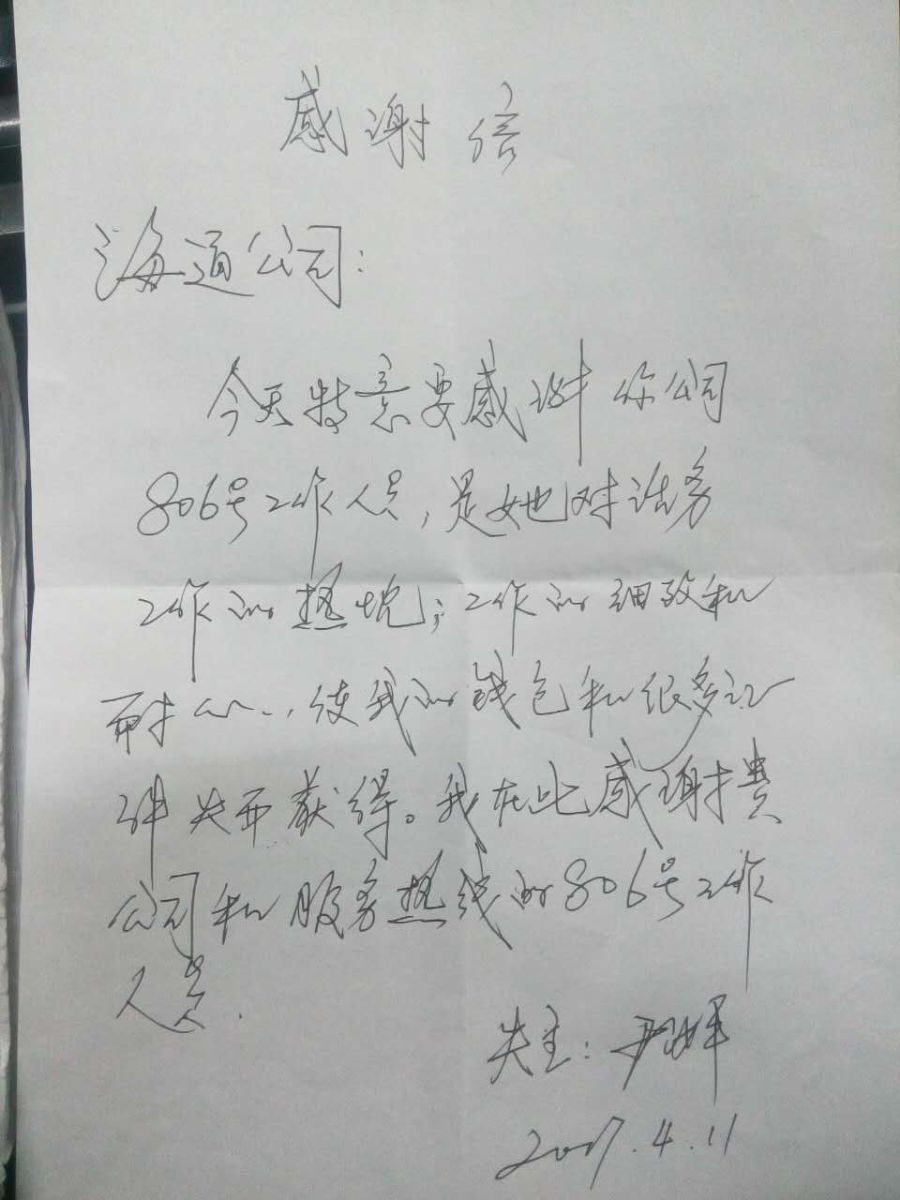 感谢信
海通公司:
今天特意要感谢你公司
806号工作人员,是她对话务
工作的热忱;工作的细致和
耐心..,使我的钱包和很多证
件失而获得。我在此感谢贵
公司和服务热线的806号工作
人员.
失主:尹
2017.4.11